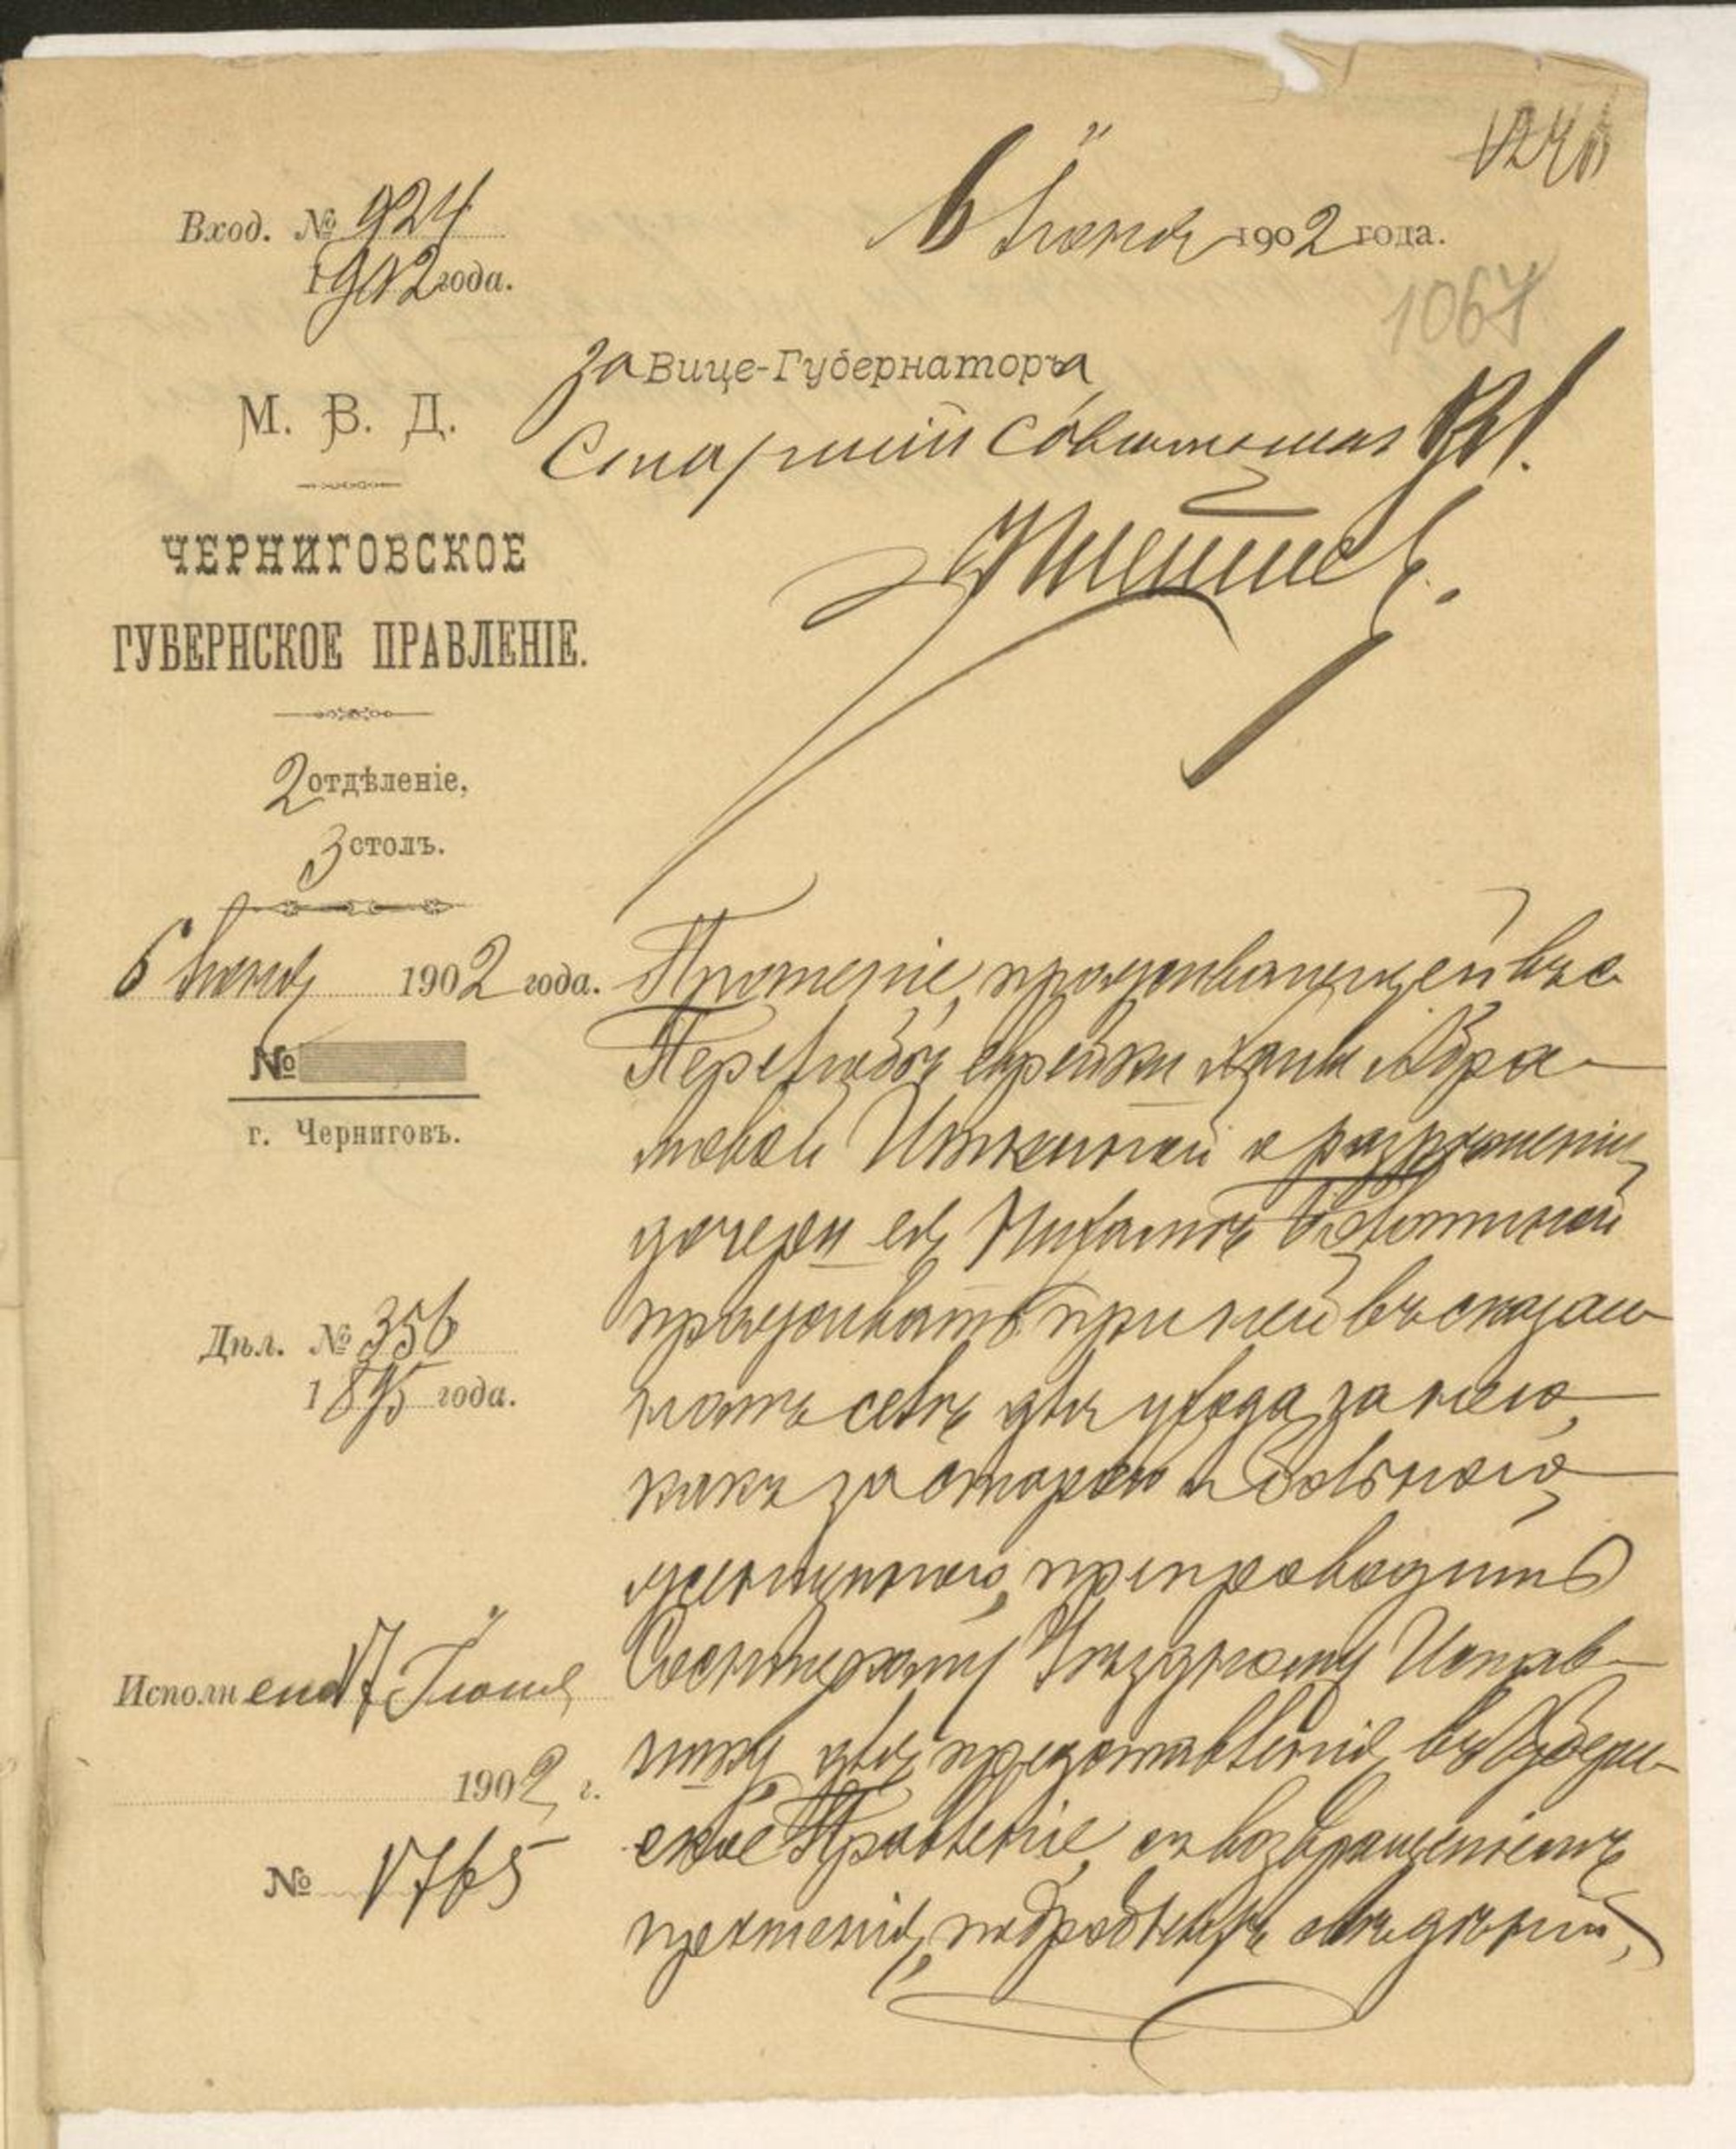 Вход. № 924
1902 года.
6 Іюня 1902 года.
1067
За Вице-Губернатора
Старшій Совѣтникъ
М. В. Д.
ЧЕРНИГОВСКОЕ
ГУБЕРНСКОЕ ПРАВЛЕНІЕ.
2 отдѣленіе,
3 столъ.
6 Іюня 1902 года.
№
г. Черниговъ.
Дѣл. № 356
1895 года.
Исполнено 17 Іюня
1902 г.
№ 1765
Прошеніе, проживающей въ с.
Перелюбѣ еврейки Ханы Абра-
мовой Иткиной о разрѣшеніи
дочери ея
проживать при ней въ сказан-
номъ селѣ для ухода за нею,
какъ за старою и больною
женщиною, препроводить
Сосницкому Уѣздному Исправ-
нику для представленія въ Губерн-
ское Правленіе, съ возвращеніемъ
прошенія, подробныхъ свѣдѣній,